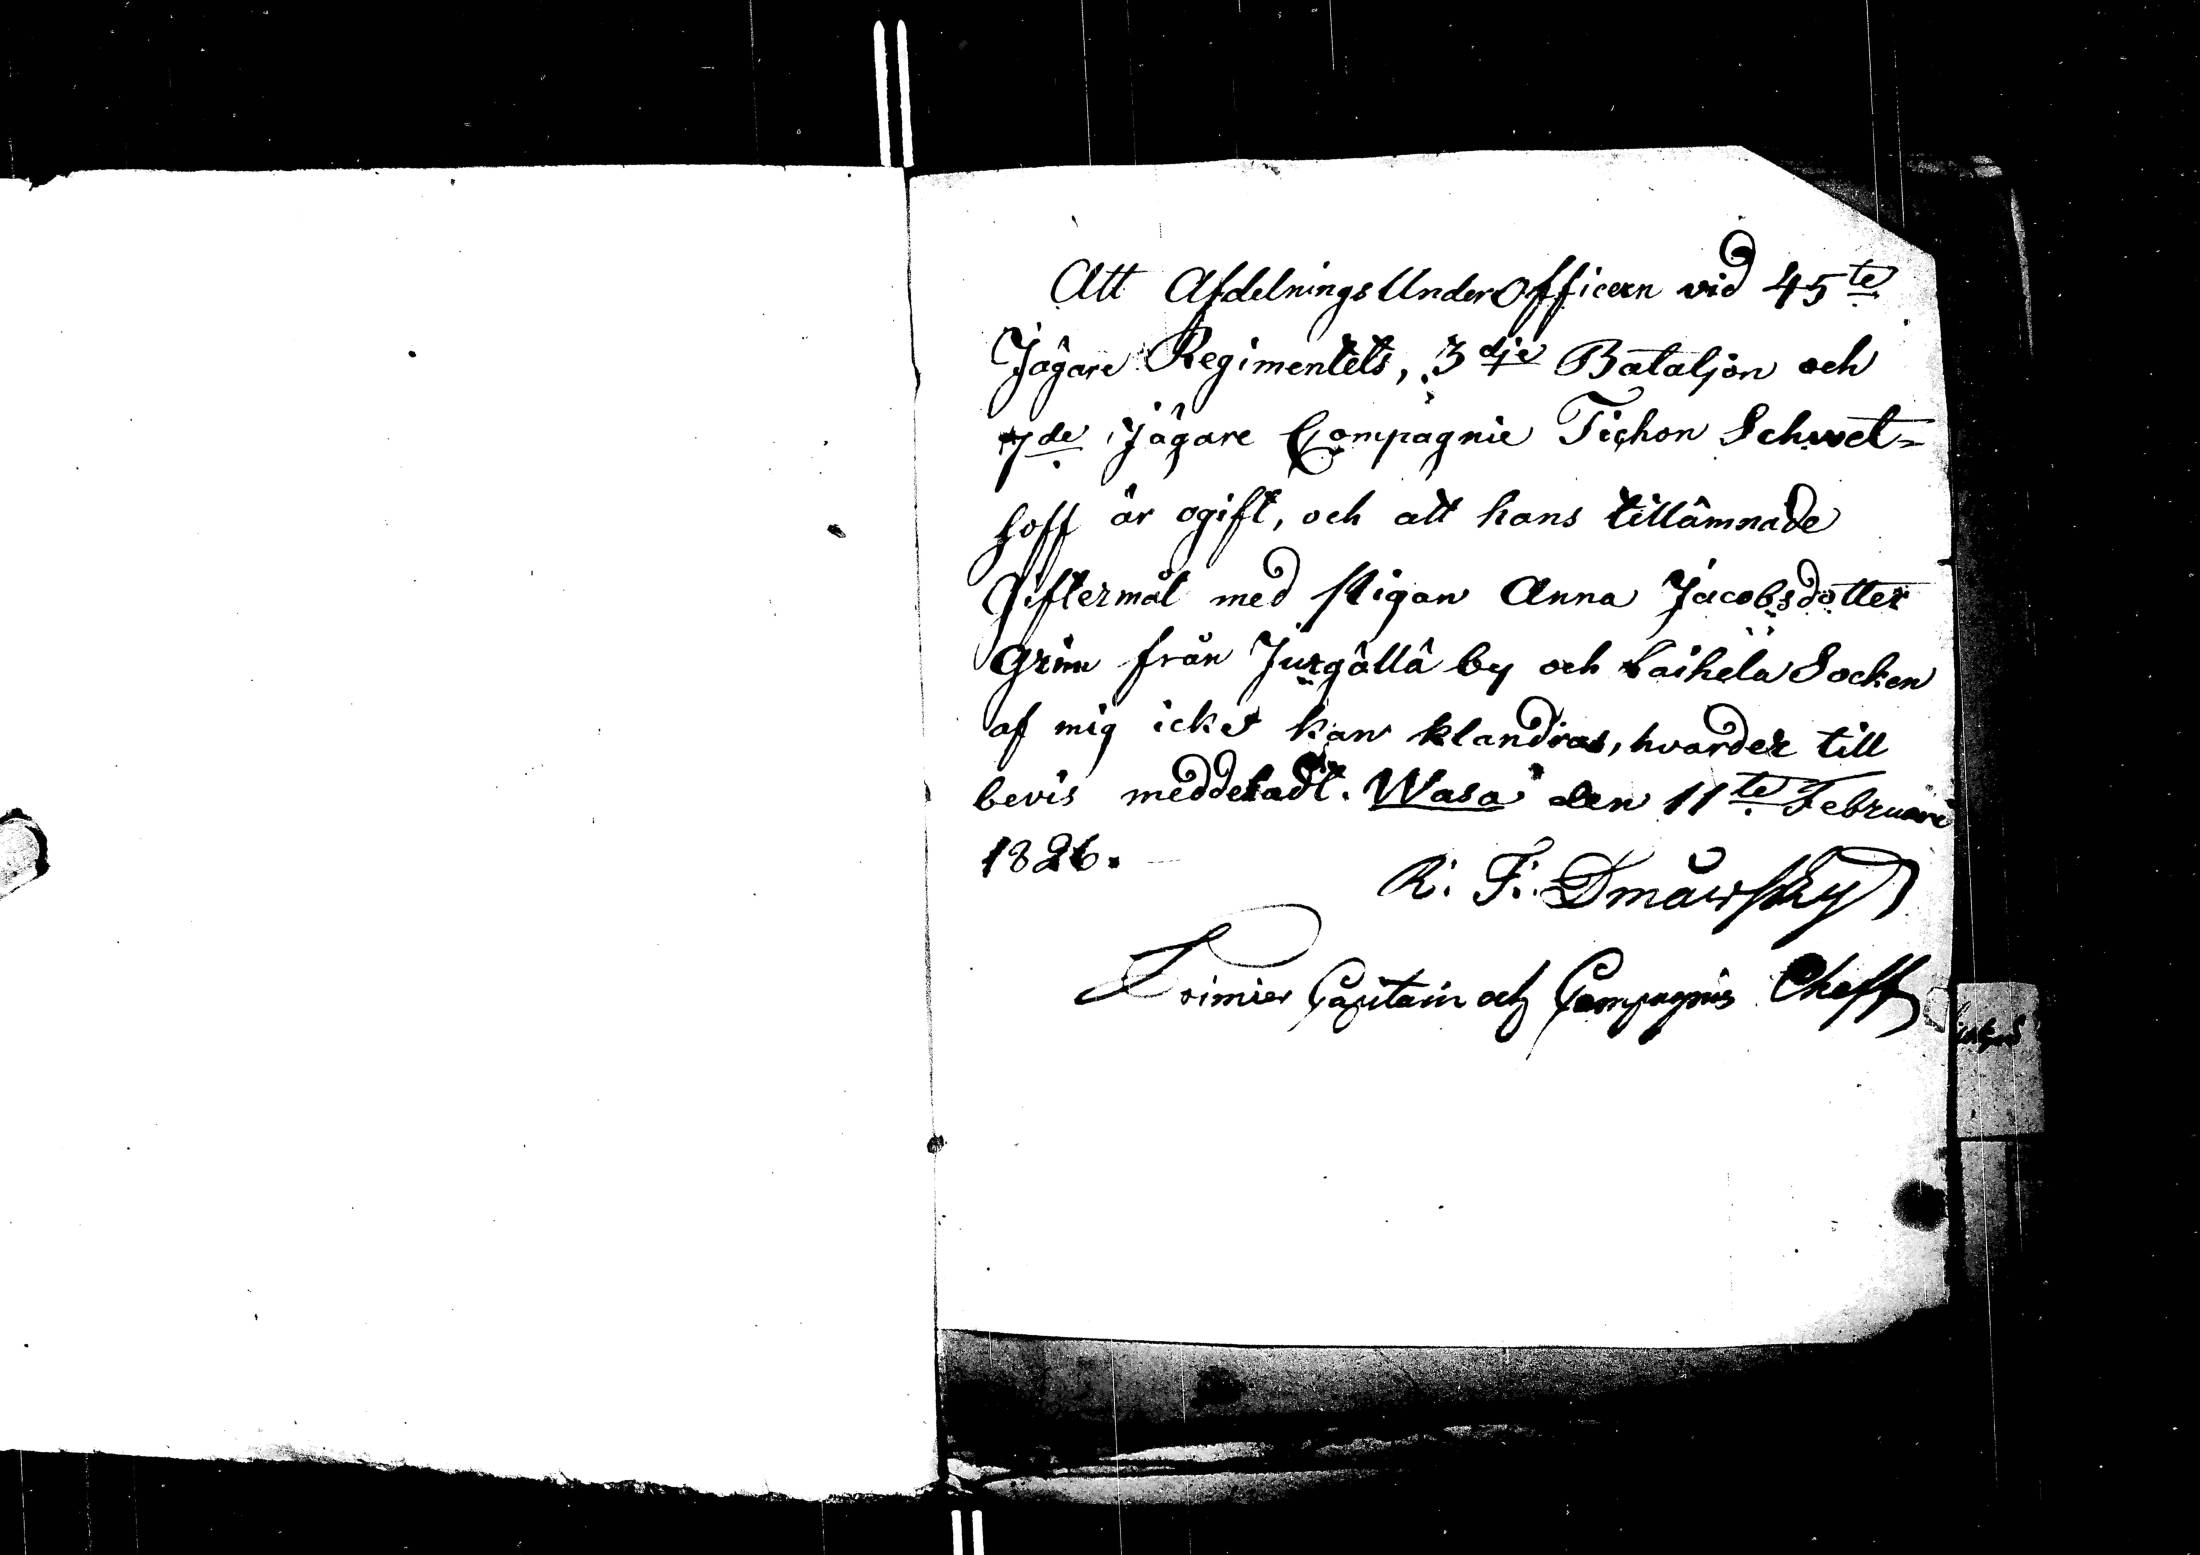 Att AfdelningsUnderOfficern vid 45te
Jägare Regimentets, 3dje Bataljon och
7de Jägare Compagnie Tichon Schwet=
hoff är ogift, och att hans tillämnade
Giftermål med Pigan Anna Jacobsdotter
Grim från Jurgällä by och Laihela Socken
af mig icke kan klandras, hvarder till
bevis meddeladt. Wasa den 11te Februari
1826.
R. F. Dmåwsky
Capitain och Compagnis Cheff